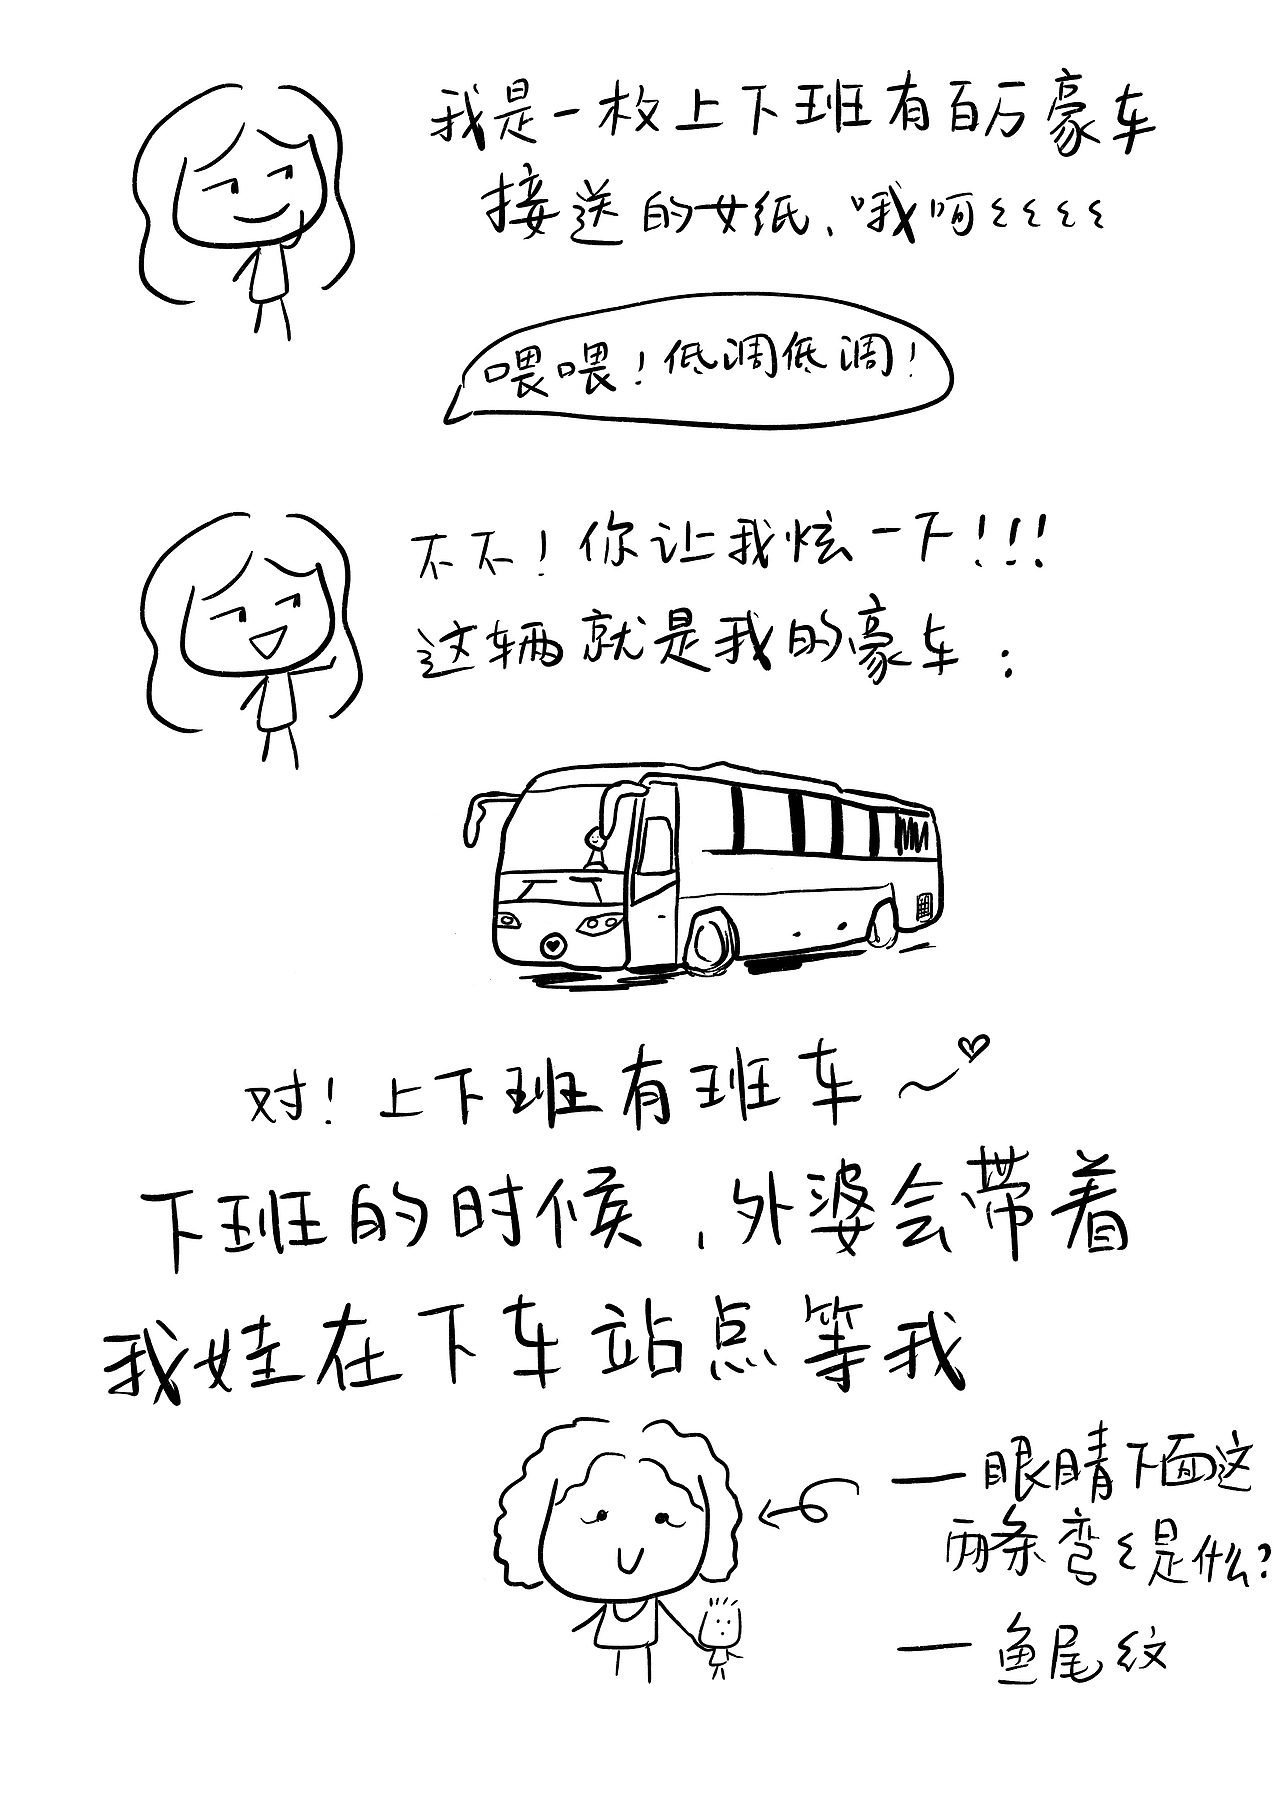 我是一枚上下班有百万豪车
接送的女纸、哦呵ミミミミ
喂喂！低调低调！
不不！你让我炫一下！！！
这辆就是我的豪车：
对！上下班有班车～
下班的时候，外婆会带着
我娃在下车站点等我
—眼睛下面这
两条弯ミ是什么？
—鱼尾纹